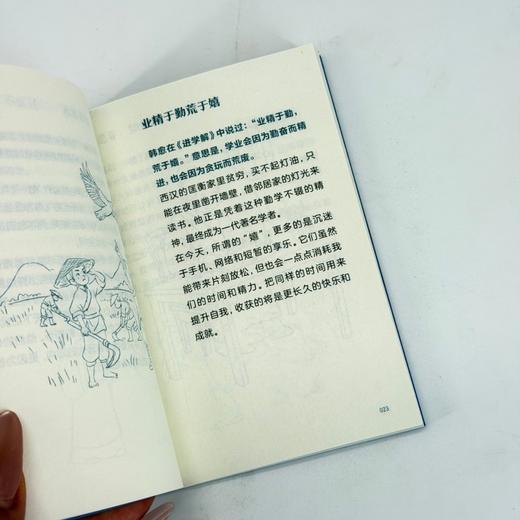 业精于勤荒于嬉
韩愈在《进学解》中说过：“业精于勤，
荒于嬉。”意思是，学业会因为勤奋而精
进，也会因为贪玩而荒废。
西汉的匡衡家里贫穷，买不起灯油，只
能在夜里凿开墙壁，借邻居家的灯光来
读书。他正是凭着这种勤学不辍的精
神，最终成为一代著名学者。
在今天，所谓的“嬉”，更多的是沉迷
于手机、网络和短暂的享乐。它们虽然
能带来片刻放松，但也会一点点消耗我
们的时间和精力。把同样的时间用来
提升自我，收获的将是更长久的快乐和
成就。
023